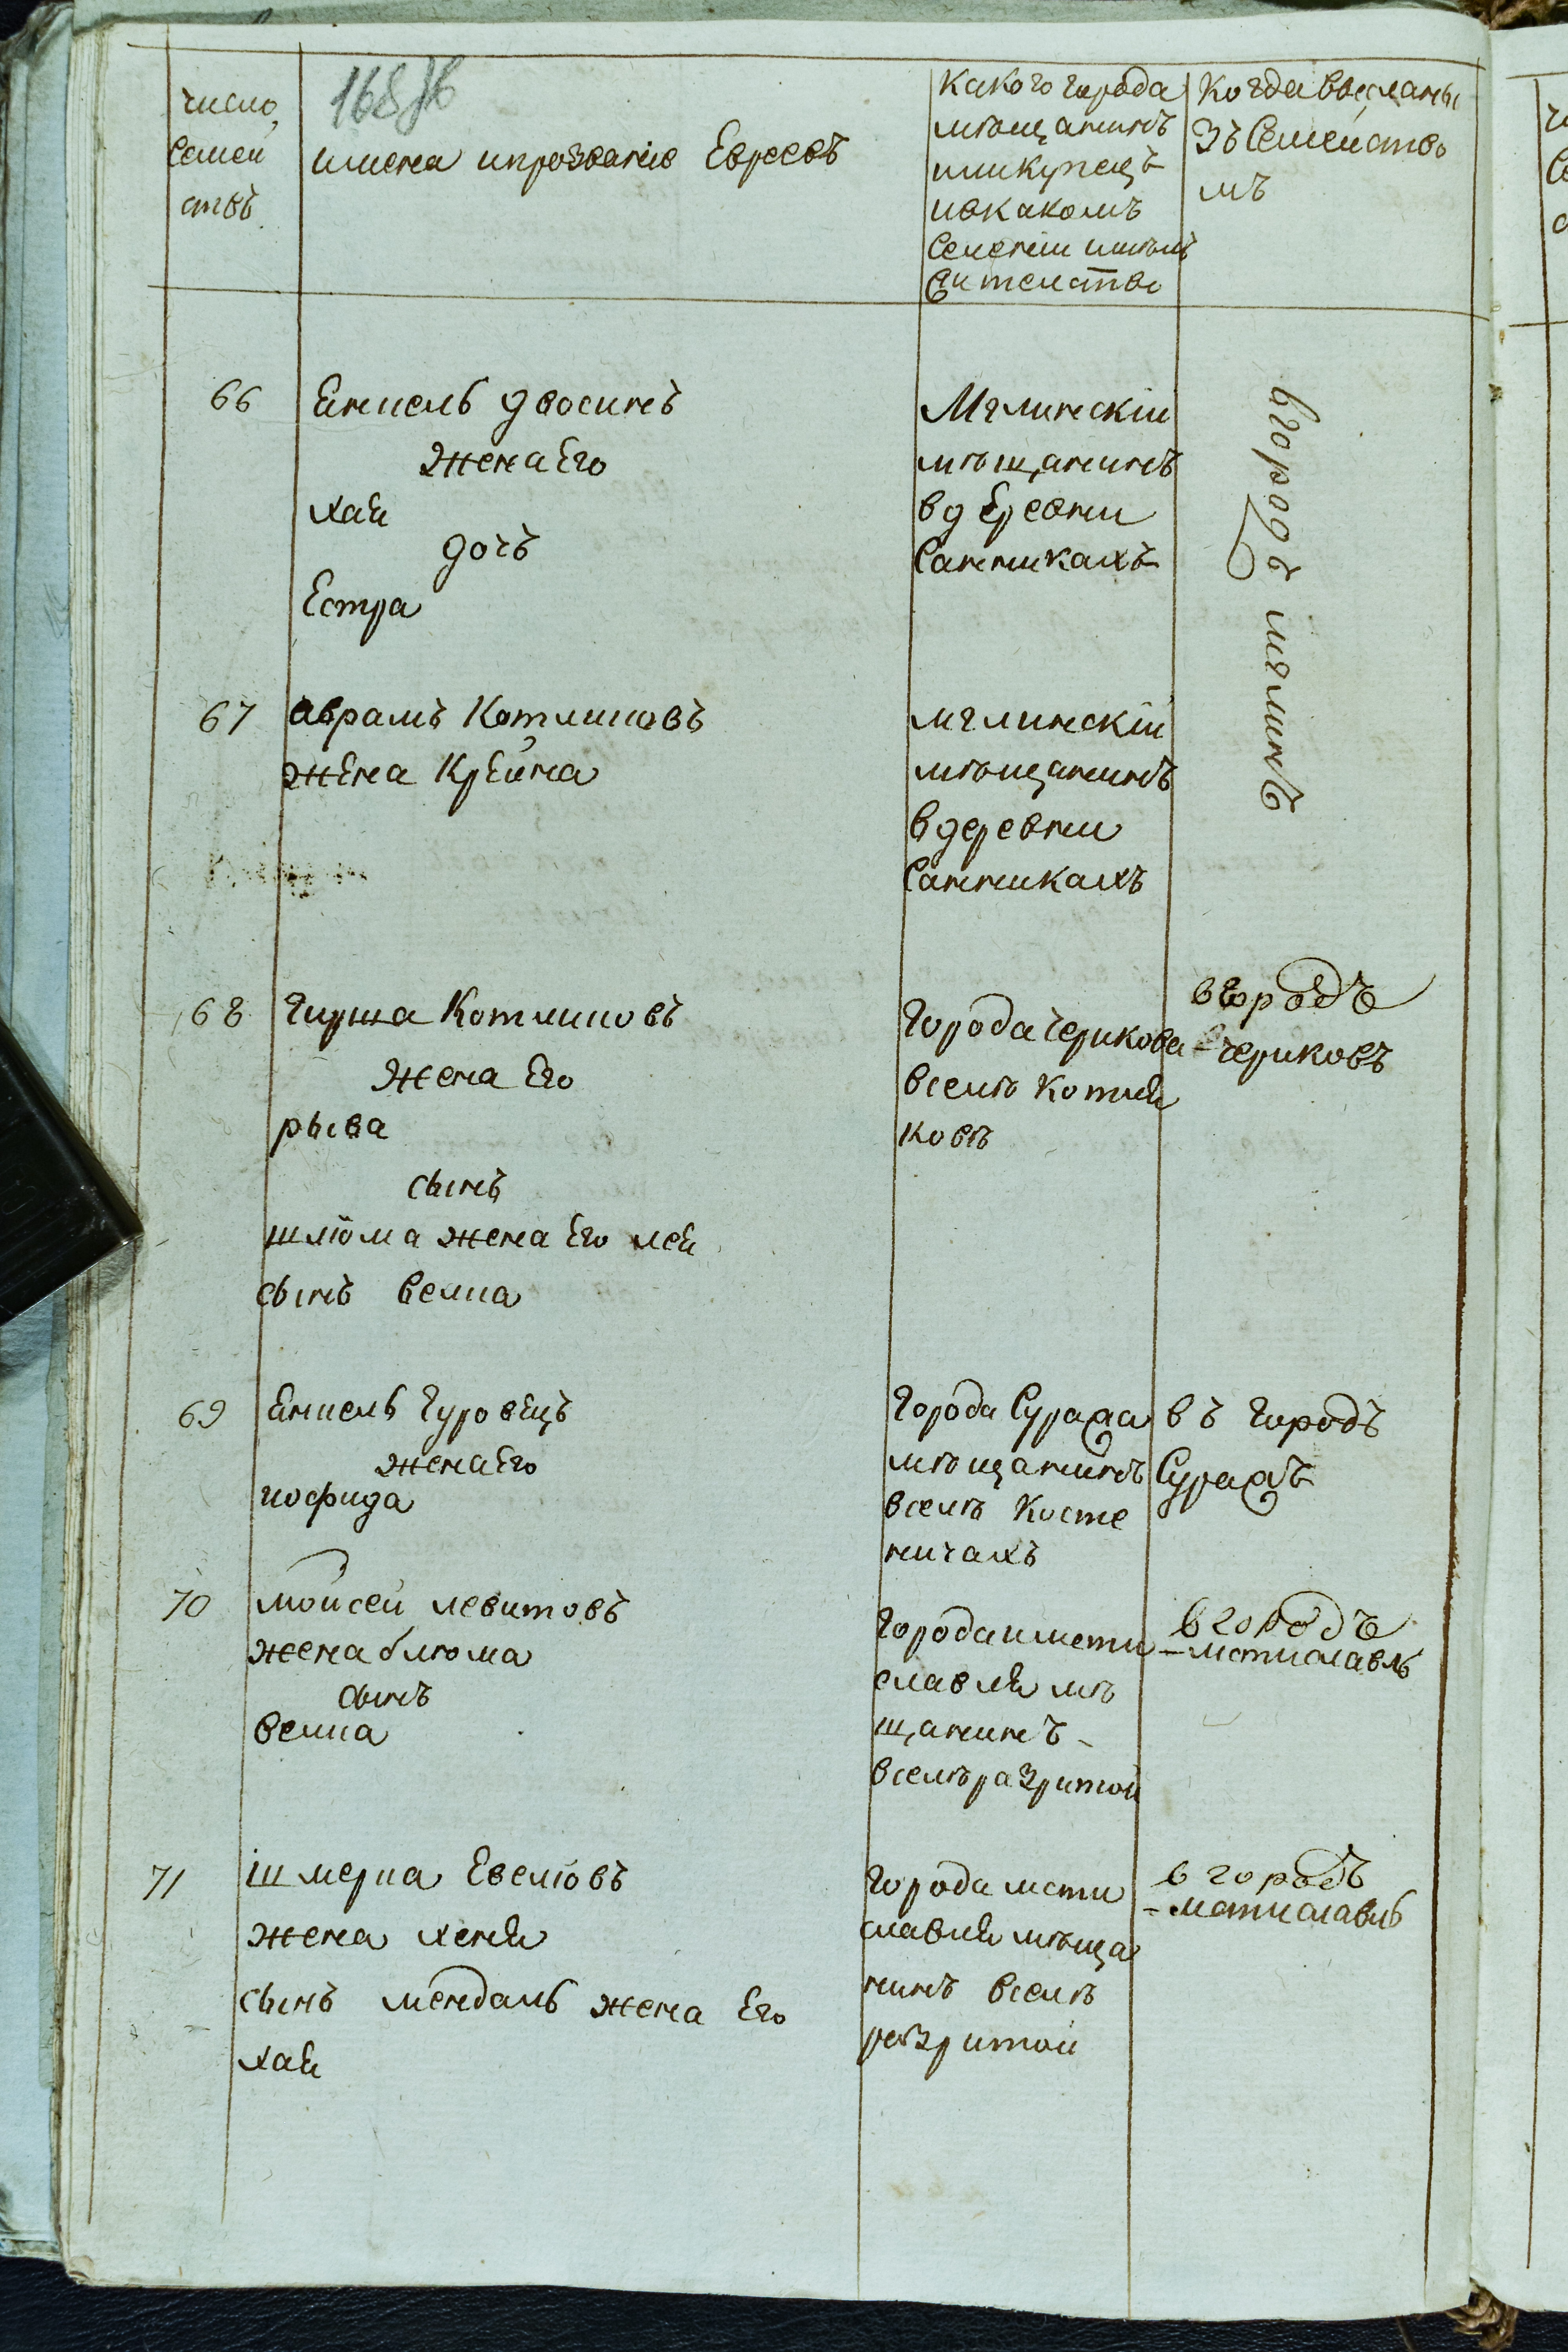 число
Семей
ствъ
имена ипрозваніе Евреевъ
Какого города
мѣщанинъ
иликупецъ
ивкакомъ
Селеніи имѣлъ
Жителство
Когда высланы
Зъ Семейство
мъ
66
Янкель Двосинъ
Жена Его
хая
дочъ
Естра
Мглинскіи
мѣщанинъ
вдеревни
Санникахъ
вгородъ мглинъ
67
аврамъ Котликовъ
жена Крейна
мглинскій
мѣщанинъ
вдеревни
Санникахъ
68
Гирша Котликовъ
Жена Его
рыва
сынъ
шліома жена Его лея
сынъ велка
Города Черикова
вселѣ Котля
ковѣ
вгородъ
Чериковъ
69
Янкель Гуровецъ
жена Его
Города Суража
мѣщанинъ
вселѣ Косте
ничахъ
въ Городъ
Суражъ
70
мойсей левитовъ
жена блюма
сынъ
велка
Города мсти
славля мѣ
щанинъ
вселѣ разритой
вгородъ
мстиславль
71
шмерка Евеліовъ
жена хеня
сынъ мендаль жена Его
хая
Города мсти
славля мѣща
нинъ вселѣ
разритой
в городъ
мстиславль